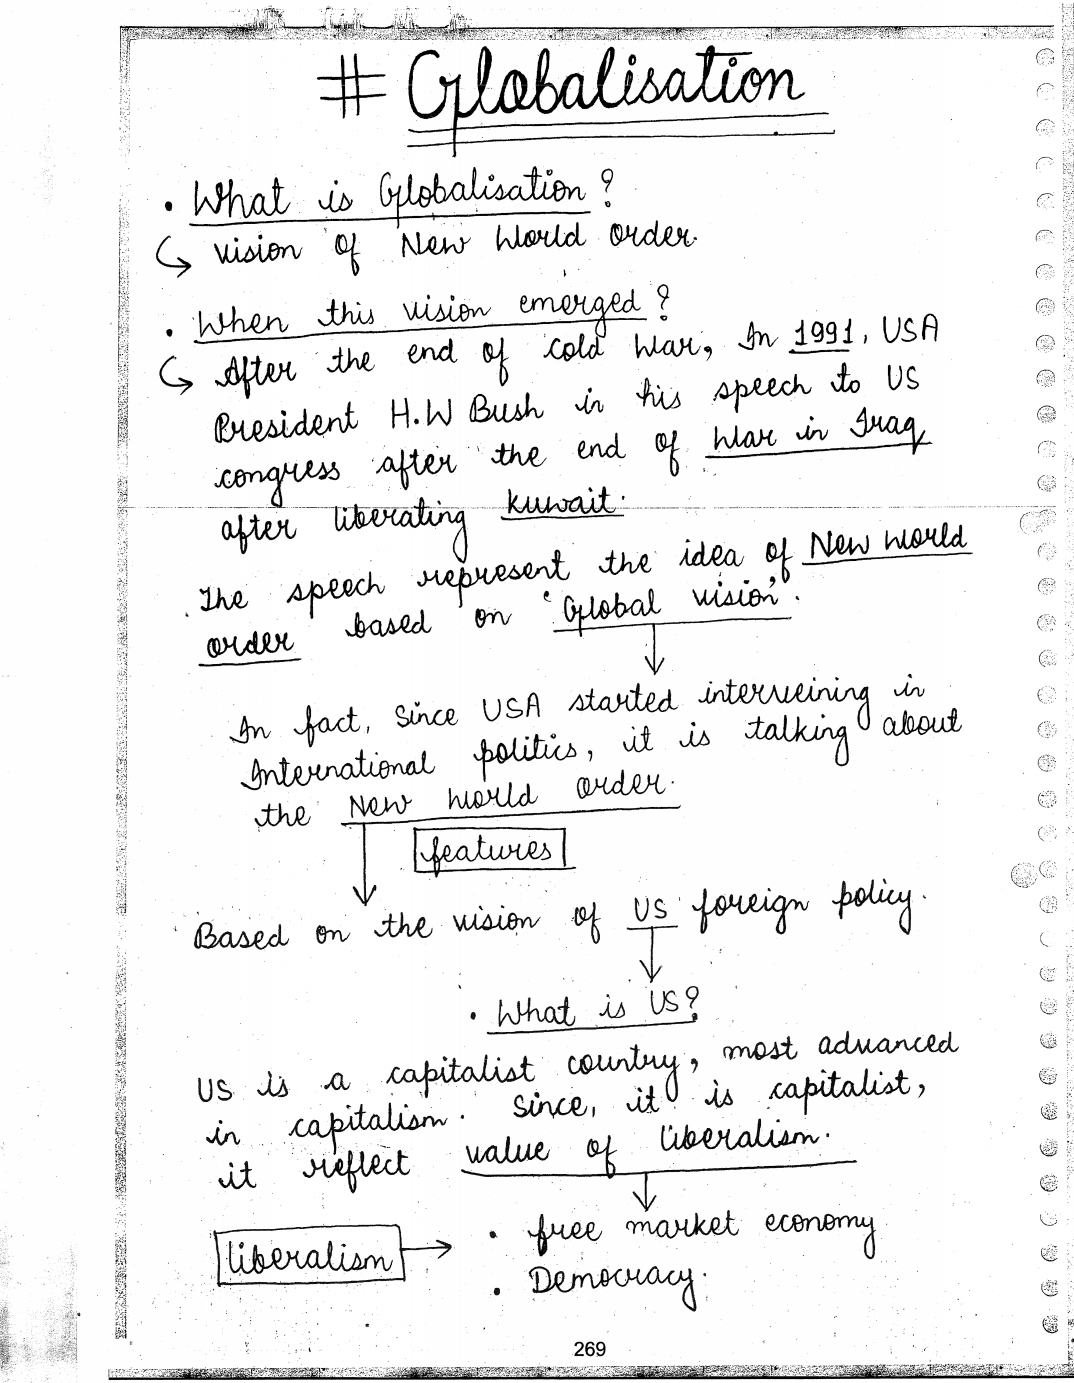 # Globalisation
• What is Globalisation?
↳ vision of New World order.
• When this vision emerged?
↳ After the end of cold war, In 1991, USA
President H.W Bush in his speech to US
congress after the end of War in Iraq
after liberating Kuwait.
The speech represent the idea of New World
order based on 'Global vision'.
In fact, since USA started interveining in
International politics, it is talking about
the New World order.
features
Based on the vision of US foreign policy.
• What is US?
US is a capitalist country, most advanced
in capitalism. Since, it is capitalist,
it reflect value of liberalism.
liberalism → • free market economy
• Democracy.
269